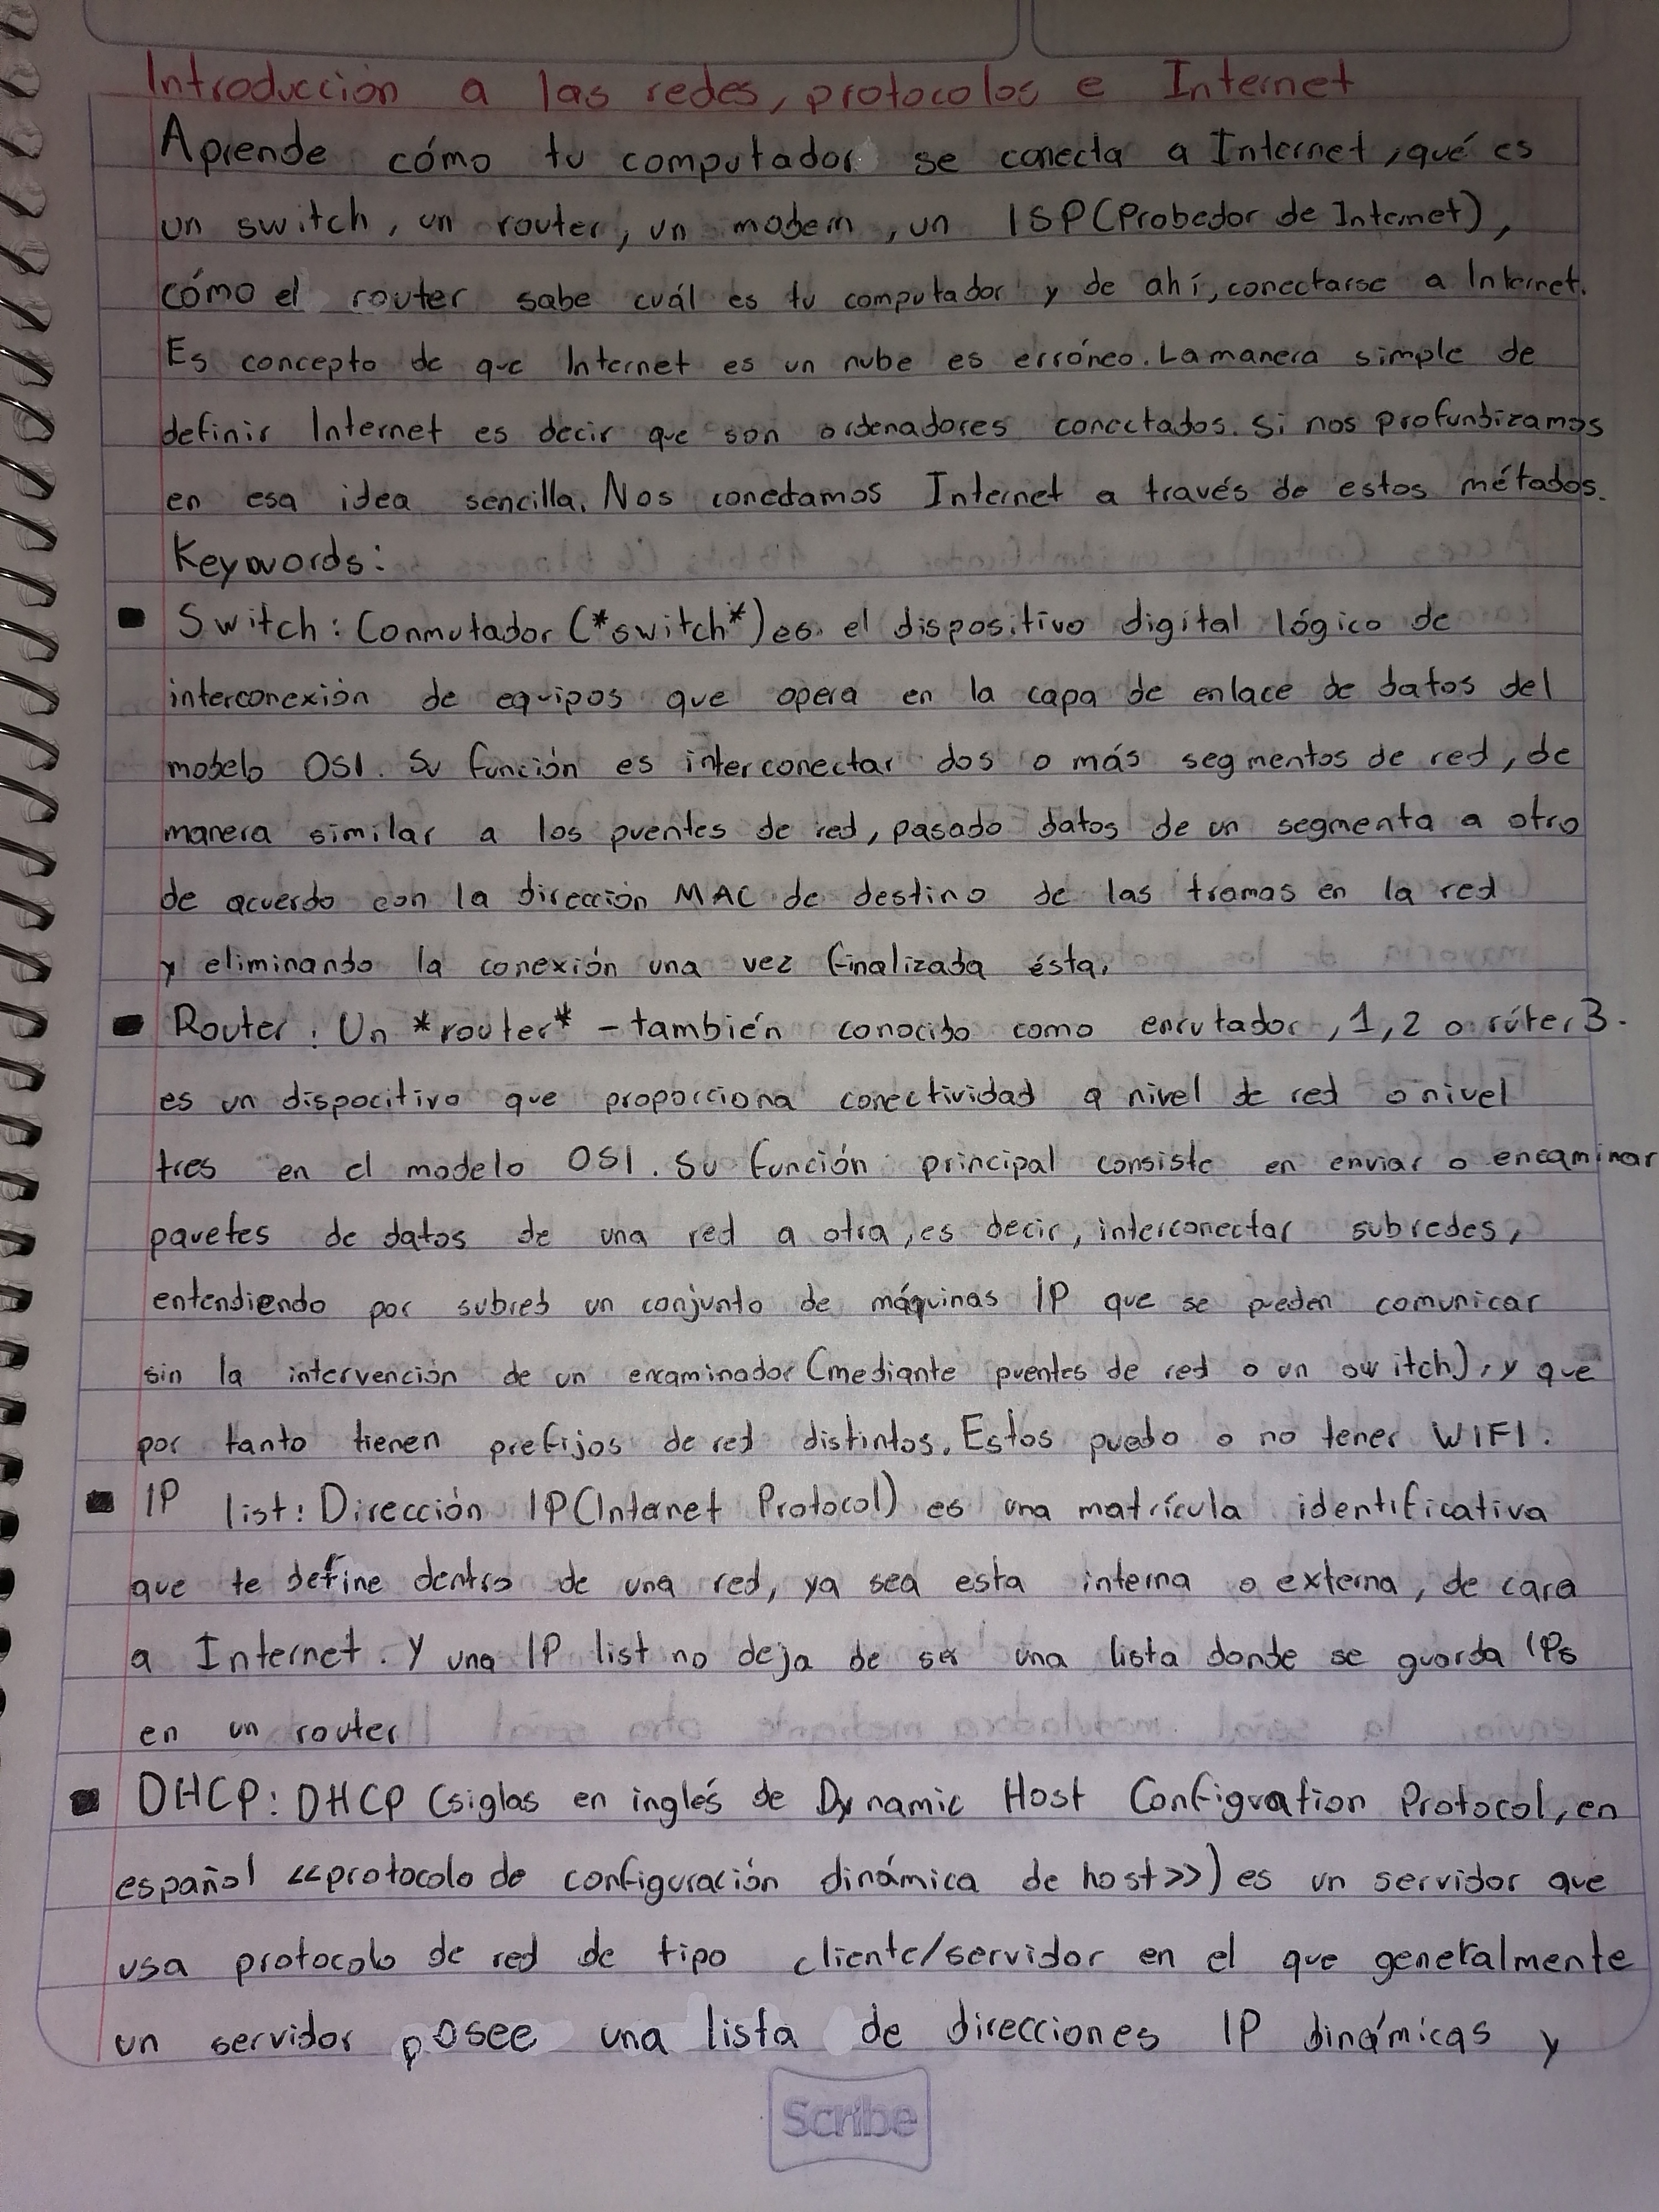 Introducción a las redes, protocolos e Internet
Aprende cómo tu computador se conecta a Internet, qué es
un switch, un router, un modem, un ISP (Probedor de Internet),
cómo el router sabe cuál es tu computador y de ahí, conectarse a Internet.
Es concepto de que Internet es un nube es erróneo. La manera simple de
definir Internet es decir que son ordenadores conectados. Si nos profundizamos
en esa idea sencilla. Nos conectamos Internet a través de estos métados.
Keywords:
Switch: Conmutador (*switch*) es el dispositivo digital lógico de
interconexión de equipos que opera en la capa de enlace de datos del
modelo OSI. Su función es interconectar dos o más segmentos de red, de
manera similar a los puentes de red, pasado datos de un segmenta a otro
de acuerdo con la dirección MAC de destino de las tramas en la red
y eliminando la conexión una vez finalizada ésta.
Router: Un *router* - también conocido como enrutador, 1, 2 o rúter 3-
es un dispocitivo que proporciona conectividad a nivel de red o nivel
tres en el modelo OSI. Su función principal consiste en enviar o encaminar
pauetes de datos de una red a otra, es decir, interconectar subredes,
entendiendo por subred un conjunto de máquinas IP que se pueden comunicar
sin la intervención de un encaminador (mediante puentes de red o un switch), y que
por tanto tienen prefijos de red distintos. Estos puedo o no tener WIFI.
IP list: Dirección IP (Internet Protocol) es una matrícula identificativa
que te define dentro de una red, ya sea esta interna o externa, de cara
a Internet. Y una IP list no deja de ser una lista donde se guarda IPs
en un router
DHCP: DHCP (siglas en inglés de Dynamic Host Configuration Protocol, en
español <<protocolo de configuración dinámica de host>>) es un servidor que
usa protocolo de red de tipo cliente/servidor en el que generalmente
un servidor posee una lista de direcciones IP dinámicas y
Scribe